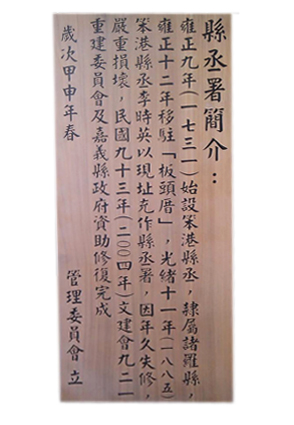 縣丞署簡介：
雍正九年(一七三一)始設笨港縣丞，隸屬諸羅縣，
雍正十二年移駐「板頭厝」，光緒十一年(一八八五)
笨港縣丞李時英以現址充作縣丞署，因年久失修，
嚴重損壞，民國九十三年(二〇〇四年)文建會九二一
重建委員會及嘉義縣政府資助修復完成
管理委員會 立
歲次甲申年春